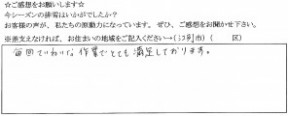 ☆ご感想をお願いします☆
今シーズンの排雪はいかがでしたか？
お客様の声が、私たちの原動力になっています。ぜひ、ご感想をお聞かせ下さい。
※差支えなければ、お住まいの地域をご記入ください→(江別市)(　　区)
毎回ていねいな作業でとても満足しております。